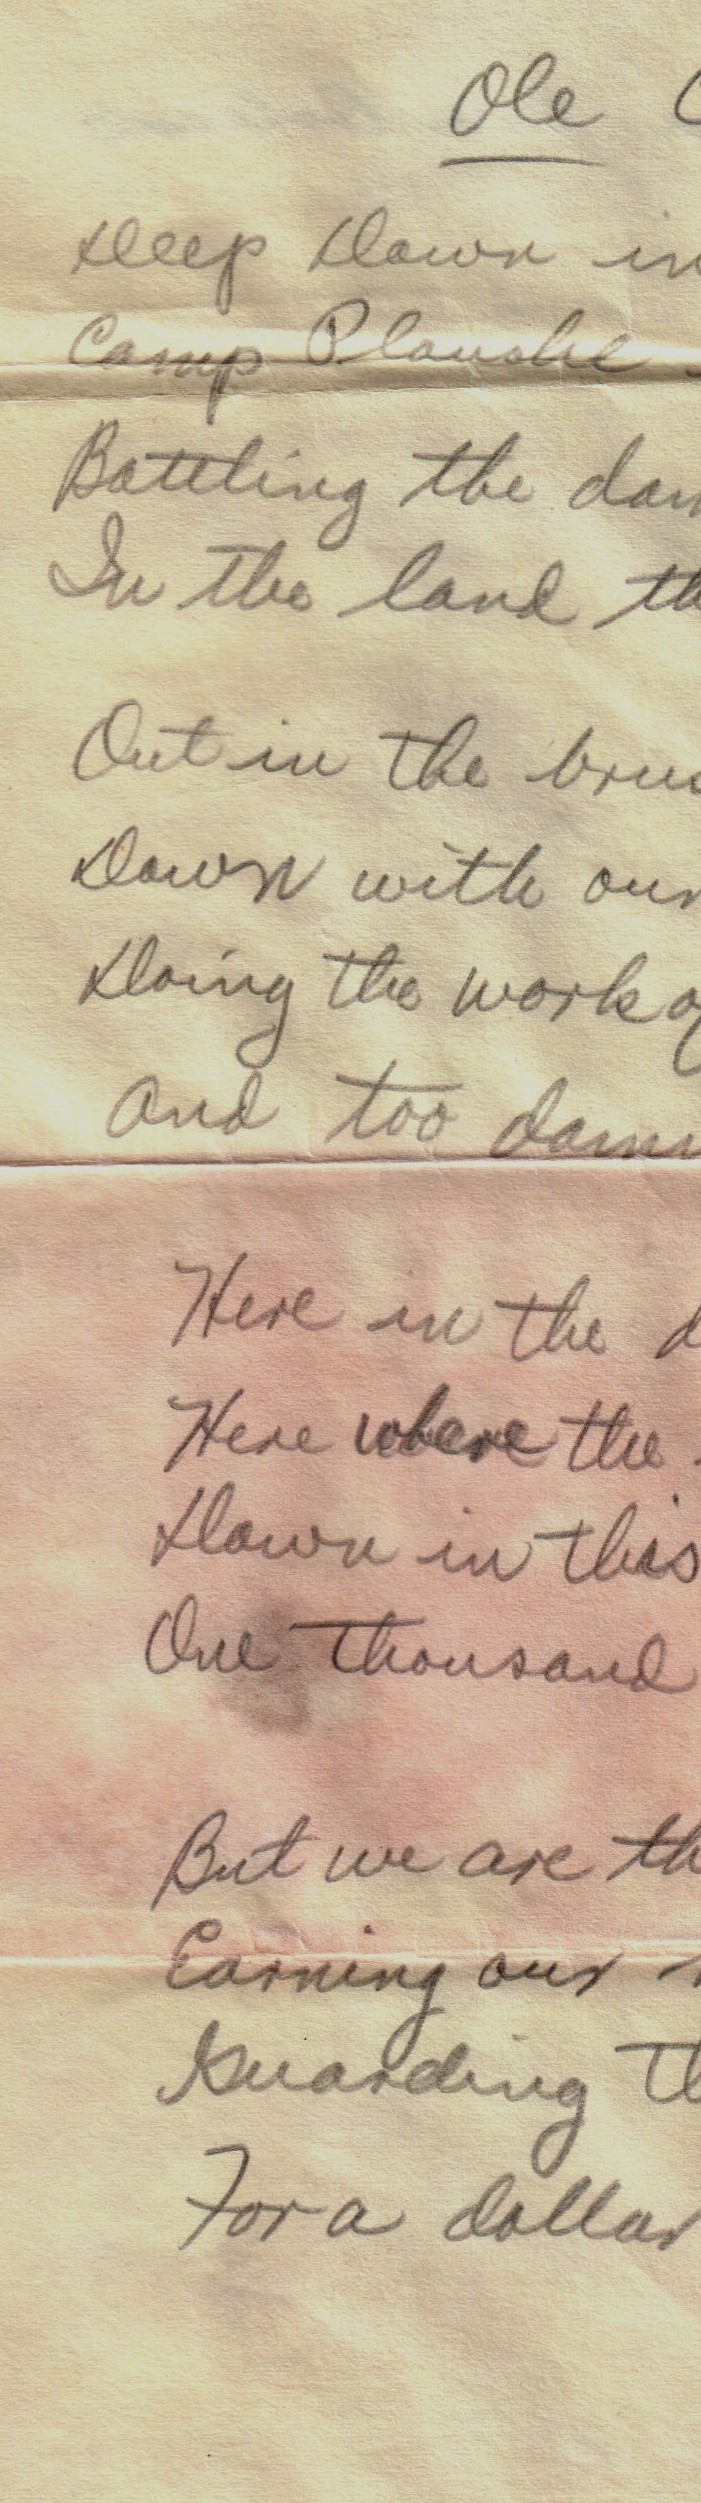 Ole C
Deep Down in
Camp Plaushe
Battling the dam
In the land th
Out in the brus
Down with our
Doing the work of
And too damn
Here in the d
Here where the
Down in this
One thousand
But we are th
Earning our
Guarding th
For a dollar